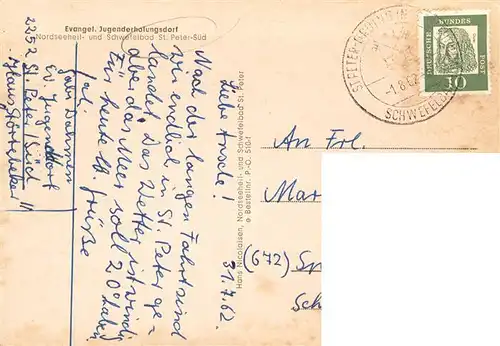 Evangel. Jugenderholungsdorf
Nordseeheil- und Schwefelbad St. Peter-Süd
31.7.62.
Liebe Ursel!
Nach der langen Fahrt sind
wir endlich in St. Peter ge-
landet. Das Wetter ist windig
aber das Meer soll 20° haben.
Für heute hzl. Grüße
Gabi Dahmen
Ev. Jugenddorf
2252 St. Peter/Süd
Hans Nicolaisen, Nordseeheil- und Schwefelbad St. Peter
Bestellnr. P.-O. 510-1
ST. PETER-ORDING
-1.8.62
SCHWEFELBAD
DEUTSCHE BUNDES POST
10
An Frl.
Mar
(672) Sp
Sch